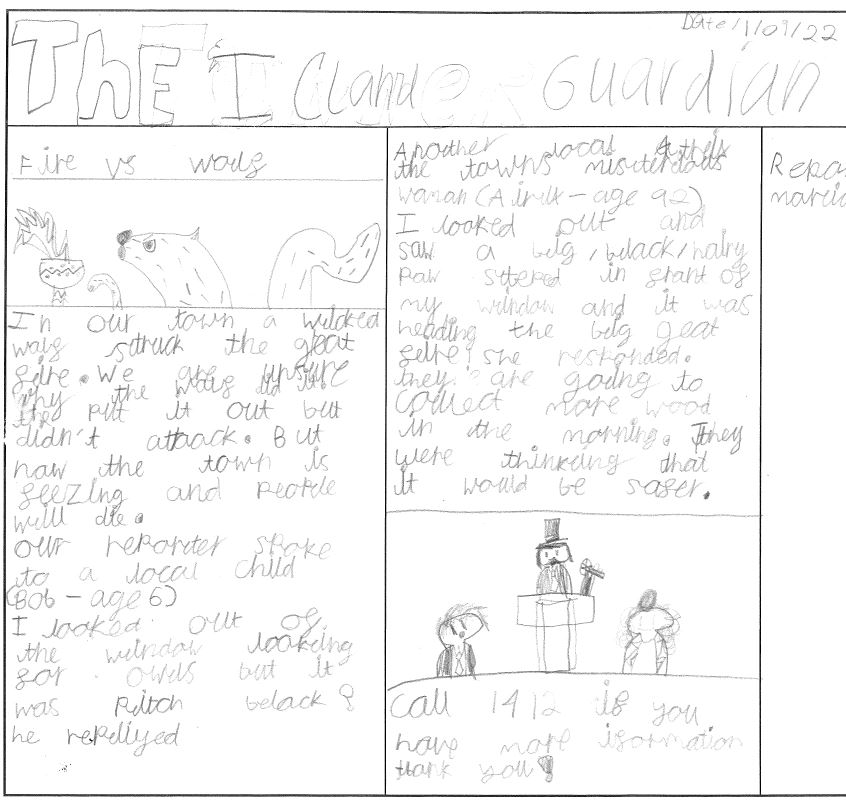 Date 1/09/22
THE ICLANDER GUARDIAN
Fire vs wolf
In our town a wicked
wolf struck the great
fire. We are unsure
why the wolf did it.
the put it out but
didn't attack. But
now the town is
feezing and people
will die.
our reporter spoke
to a local child
(Bob - age 6)
I looked out of
the window looking
for owls but it
was pitch belack?
he replyed
Another local
the towns
woman (Airik - age 92)
I looked out and
saw a big, belack, hairy
paw in frant of
my window and it was
heading the big geat
feire! she responded.
they are going to
collect more wood
in the morning. They
were thinking that
it would be safer.
call 1412 if you
have more iformation
thank you!